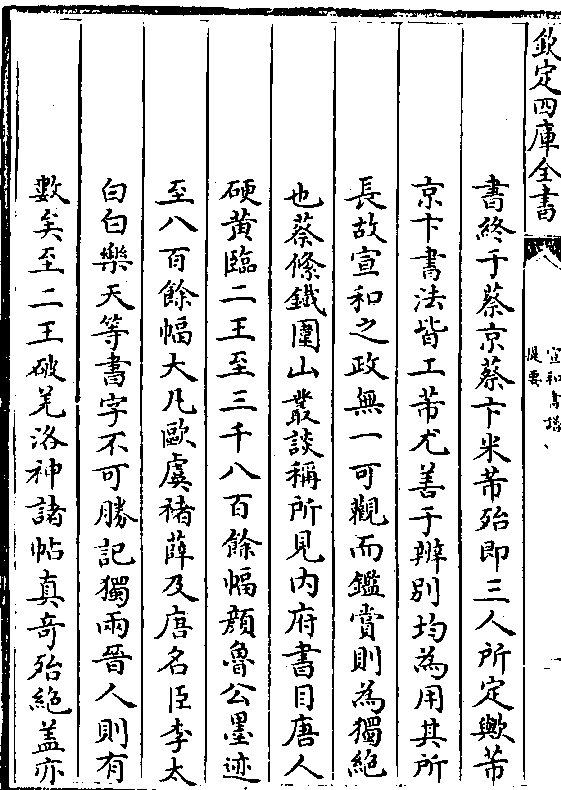 欽定四庫全書
宣和書譜
提要
書終于蔡京蔡卞米芾殆即三人所定歟芾
京卞書法皆工芾尤善于辨别均為用其所
長故宣和之政無一可觀而鑑賞則為獨絶
也蔡絛鐵圍山叢談稱所見内府書目唐人
硬黄臨二王至三千八百餘幅顔魯公墨迹
至八百餘幅大凡歐虞禇薛及唐名臣李太
白白樂天等書字不可勝記獨兩晉人則有
數矣至二王破羌洛神諸帖真奇殆絶蓋亦